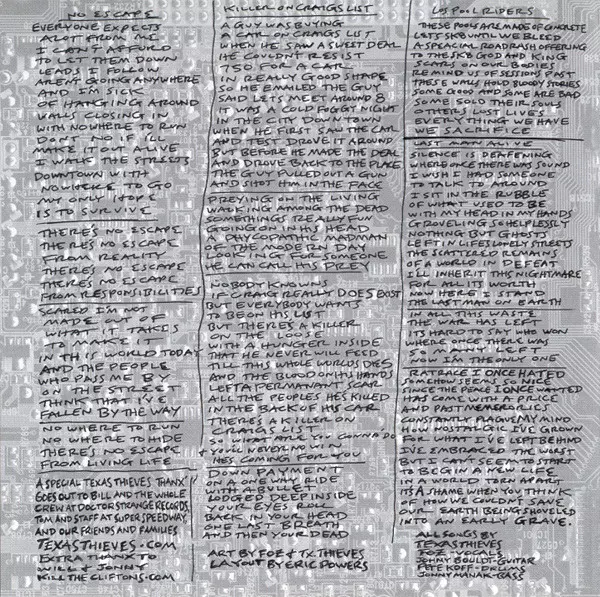 NO ESCAPE
EVERYONE EXPECTS
A LOT FROM ME
I CAN'T AFFURD
TO LET THEM DOWN
LEADS I FOLLOW
ARENT GOING ANYWHERE
AND I'M SICK
OF HANGING AROUND
WALLS CLOSING IN
WITH NOWHERE TO RUN
DON'T NO IF I'LL
MAKE IT OUT ALIVE
I WALK THE STREETS
DOWNTOWN WITH
NOWHERE TO GO
MY ONLY HOPE
IS TO SURVIVE
THERE'S NO ESCAPE
THERE'S NO ESCAPE
FROM REALITY
THERE'S NO ESCAPE
THERE'S NO ESCAPE
FROM RESPONSIBILITIES
SCARED I'M NOT
MADE OUT OF
WHAT IT TAKES
TO MAKE IT
IN THIS WORLD TODAY
AND THE PEOPLE
WHO PASS ME BY
ON THE STREET
THINK THAT I'VE
FALLEN BY THE WAY
NO WHERE TO RUN
NO WHERE TO HIDE
THERE'S NO ESCAPE
FROM LIVING LIFE
A SPECIAL TEXAS THIEVES THANX
GOES OUT TO BILL AND THE WHOLE
CREW AT DOCTOR STRANGE RECORDS,
TOM AND STAFF AT SUPER SPEEDWAY,
AND OUR FRIENDS AND FAMILIES
TEXASTHIEVES.COM
EXTRA THANX TO
WILL & JONNY
KILLTHECLIFTONS.COM
KILLER ON CRAIGS LIST
A GUY WAS BUYING
A CAR ON CRAIGS LIST
WHEN HE SAW A SWEET DEAL
HE COULDN'T RESIST
750 FOR A CAR
IN REALLY GOOD SHAPE
SO HE EMAILED THE GUY
SAID LETS MEET AROUND 8
IT WAS A COLD FOGGY NIGHT
IN THE CITY DOWNTOWN
WHEN HE FIRST SAW THE CAR
AND TEST DROVE IT AROUND
BUT BEFORE HE MADE THE DEAL
AND DROVE BACK TO THE PLACE
THE GUY PULLED OUT A GUN
AND SHOT HIM IN THE FACE
PREYING ON THE LIVING
WALKING AMONG THE DEAD
SOMETHINGS REALLY FUN
GOING ON IN HIS HEAD
A PHYCOPATHIC MADMAN
OF THE MODERN DAY
LOOKING FOR SOMEONE
HE CAN CALL HIS PREY
NOBODY KNOWNS
IF CRAIG REALLY DOES EXIST
BUT EVERYBODY WANTS
TO BE ON HIS LIST
BUT THERE'S A KILLER
ON THE LOOSE
WITH A HUNGER INSIDE
THAT HE NEVER WILL FEED
TILL THIS WHOLE WORLDS DIES
AND THE BLOOD ON HIS HANDS
LEFT A PERMANANT SCAR
ALL THE PEOPLES HE'S KILLED
IN THE BACK OF HIS CAR
THERE'S A KILLER ON
CRAIGS LIST
SO WHAT ARE YOU GONNA DO
HE'S COMING FOR YOU
DOWN PAYMENT
ON A ONE WAY RIDE
WITH A BULLET
LODGED DEEP INSIDE
YOUR EYES ROLL
BACK IN YOUR HEAD
ONE LAST BREATH
AND THEN YOUR DEAD
ART BY FOZ & TX THIEVES
LAYOUT BY ERIC POWERS
LOS POOL RIDERS
THESE POOLS ARE MADE OF CONCRETE
LETS SK8 UNTIL WE BLEED
A SPEACIAL ROADRASH OFFERING
TO THE SK8 GOD AND KING
SCARS ON OUR BODIES
REMIND US OF SESSIONS PAST
THESE WALLS HOLD BLOODY STORIES
SOME GOOD AND SOME ARE BAD
SOME SOLD THEIR SOULS
OTHERS LOST LIVES
EVERYTHING WE HAVE
WE SACRIFICE
LAST MAN ALIVE
SILENCE IS DEAFENING
WHERE ONCE THERE WAS SOUND
I WISH I HAD SOMEONE
TO TALK TO AROUND
I SIT IN THE RUBBLE
OF WHAT USED TO BE
WITH MY HEAD IN MY HANDS
GROVELING SO HELPLESSLY
NOTHING BUT GHOSTS
LEFT IN LIFES LONELY STREETS
THE SCATTERED REMAINS
OF A WORLD IN DEFEAT
I'LL INHERIT THIS NIGHTMARE
FOR ALL ITS WORTH
NOW HERE I STAND
THE LAST MAN ON EARTH
IN ALL THIS WASTE
THE WAR HAS LEFT
ITS HARD TO SAY WHO WON
WHERE ONCE THERE WAS
SO MANY LEFT
NOW I'M THE ONLY ONE
RATRACE I ONCE HATED
SOMEHOW SEEMS SO NICE
SINCE THE PEACE I ONCE WANTED
HAS COME WITH A PRICE
AND PAST MEMERORICS
CONSTANTLY PLAGUE MY MIND
HOW NOSTALGIC I'VE GROWN
FOR WHAT I'VE LEFT BEHIND
I'VE EMBRACED THE WORST
BUT I CAN'T SEEM TO START
TO BEGIN A NEW LIFE
IN A WORLD TORN APART
IT'S A SHAME WHEN YOU THINK
OF HOW WE COULDN'T SAVE
OUR EARTH BEING SHOVELED
INTO AN EARLY GRAVE.
ALL SONGS BY
TEXAS THIEVES
FOZ - VOCALS
JOHNY BOULDT - GUITAR
PETE KOFF - DRUMS
JONNY MANAK - BASS